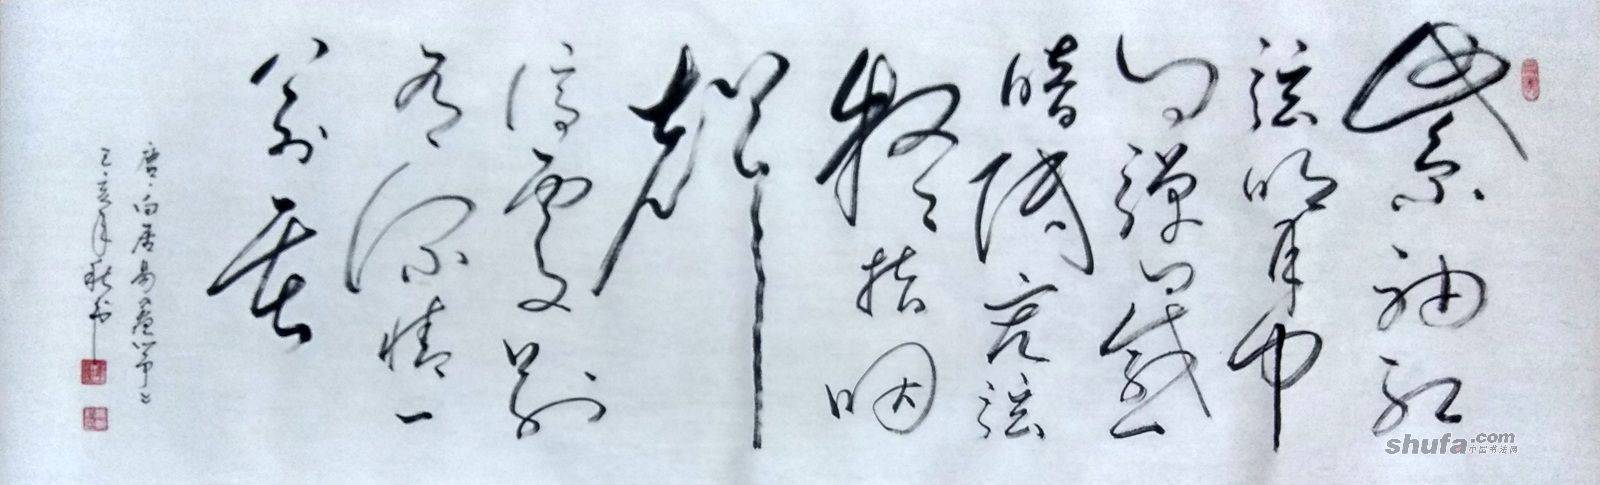 紫袖红
弦明月中
自弹自感
暗低容弦
凝指咽
聲
停处别
有深情一
万重
唐·白居易夜筝
己亥年秋书
shufa.com
中国书法网